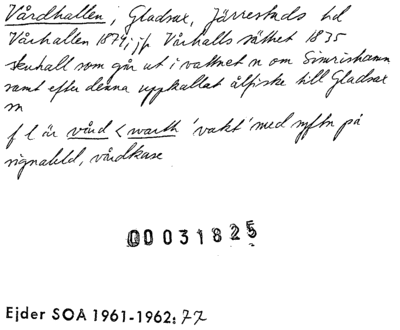 Vårdhallen, Gladsax, Järrestads hd
Vårhallen 1879; jfr Vårhalls sättet 1835
stenhall som går ut i vattnet n om Simrishamn
samt efter denna uppkallat ålfiske till Gladsax
sn
f l är vård < warth 'vakt' med syftn på
signaleld, vårdkase
00031825
Ejder SOA 1961-1962: 77